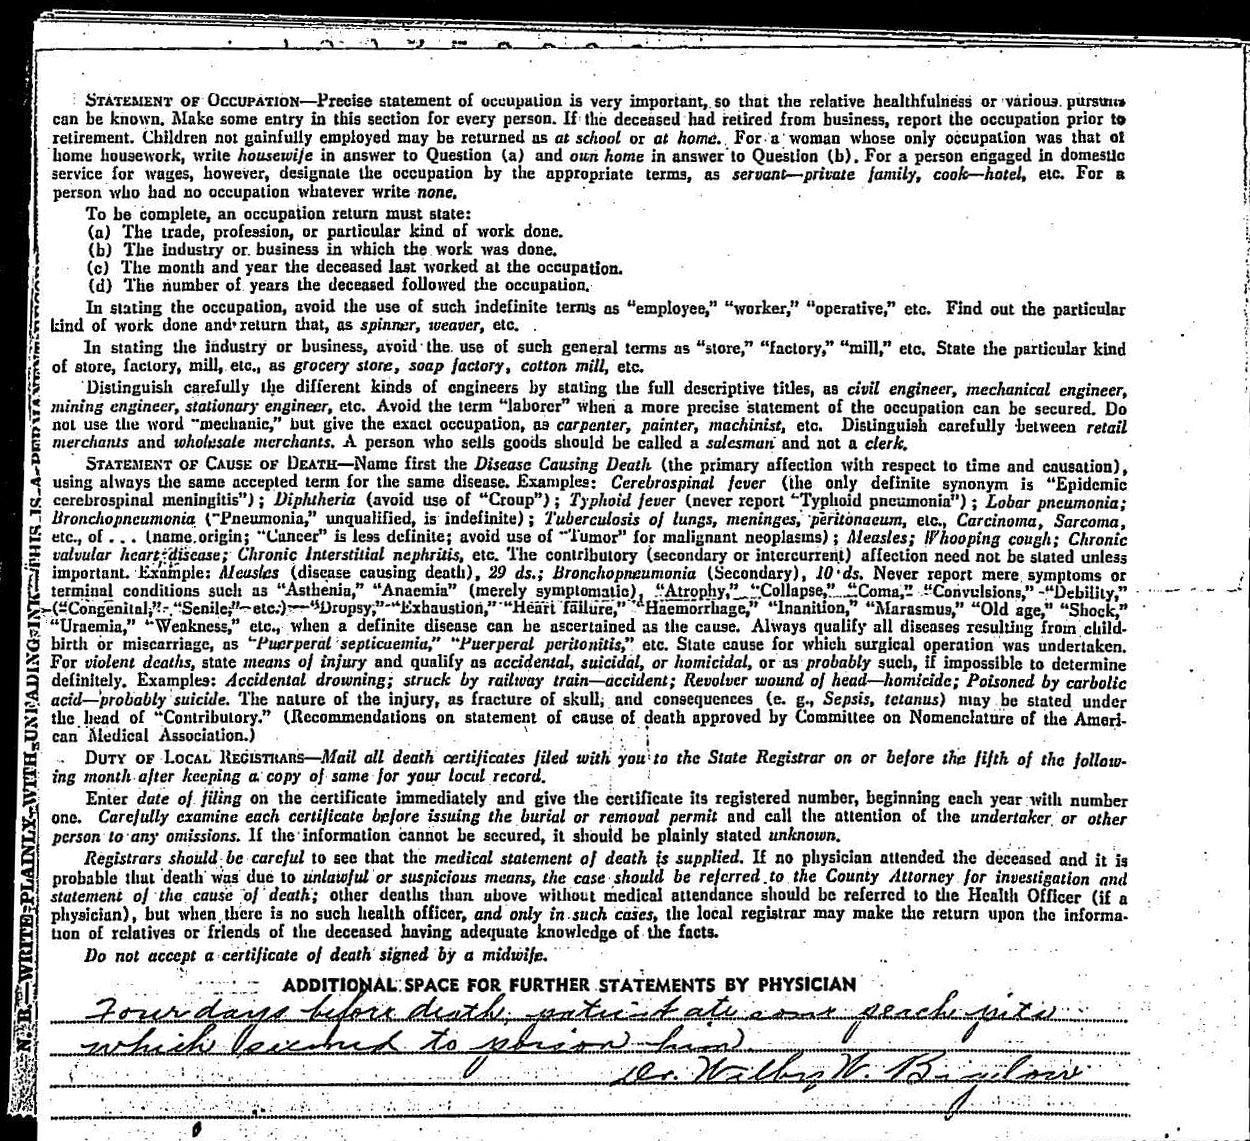 STATEMENT OF OCCUPATION—Precise statement of occupation is very important, so that the relative healthfulness or various pursuits
can be known. Make some entry in this section for every person. If the deceased had retired from business, report the occupation prior to
retirement. Children not gainfully employed may be returned as at school or at home. For a woman whose only occupation was that of
home housework, write housewife in answer to Question (a) and own home in answer to Question (b). For a person engaged in domestic
service for wages, however, designate the occupation by the appropriate terms, as servant—private family, cook—hotel, etc. For a
person who had no occupation whatever write none.
To be complete, an occupation return must state:
(a) The trade, profession, or particular kind of work done.
(b) The industry or business in which the work was done.
(c) The month and year the deceased last worked at the occupation.
(d) The number of years the deceased followed the occupation.
In stating the occupation, avoid the use of such indefinite terms as "employee," "worker," "operative," etc. Find out the particular
kind of work done and return that, as spinner, weaver, etc.
In stating the industry or business, avoid the use of such general terms as "store," "factory," "mill," etc. State the particular kind
of store, factory, mill, etc., as grocery store, soap factory, cotton mill, etc.
Distinguish carefully the different kinds of engineers by stating the full descriptive titles, as civil engineer, mechanical engineer,
mining engineer, stationary engineer, etc. Avoid the term "laborer" when a more precise statement of the occupation can be secured. Do
not use the word "mechanic," but give the exact occupation, as carpenter, painter, machinist, etc. Distinguish carefully between retail
merchants and wholesale merchants. A person who sells goods should be called a salesman and not a clerk.
STATEMENT OF CAUSE OF DEATH—Name first the Disease Causing Death (the primary affection with respect to time and causation),
using always the same accepted term for the same disease. Examples: Cerebrospinal fever (the only definite synonym is "Epidemic
cerebrospinal meningitis"); Diphtheria (avoid use of "Croup"); Typhoid fever (never report "Typhoid pneumonia"); Lobar pneumonia;
Bronchopneumonia ("Pneumonia," unqualified, is indefinite); Tuberculosis of lungs, meninges, peritonaeum, etc., Carcinoma, Sarcoma,
etc., of . . . (name origin; "Cancer" is less definite; avoid use of "Tumor" for malignant neoplasms); Measles; Whooping cough; Chronic
valvular heart disease; Chronic Interstitial nephritis, etc. The contributory (secondary or intercurrent) affection need not be stated unless
important. Example: Measles (disease causing death), 29 ds.; Bronchopneumonia (Secondary), 10 ds. Never report mere symptoms or
terminal conditions such as "Asthenia," "Anaemia" (merely symptomatic), "Atrophy," "Collapse," "Coma," "Convulsions," "Debility,"
("Congenital," "Senile," etc.) "Dropsy," "Exhaustion," "Heart failure," "Haemorrhage," "Inanition," "Marasmus," "Old age," "Shock,"
"Uraemia," "Weakness," etc., when a definite disease can be ascertained as the cause. Always qualify all diseases resulting from child-
birth or miscarriage, as "Puerperal septicaemia," "Puerperal peritonitis," etc. State cause for which surgical operation was undertaken.
For violent deaths, state means of injury and qualify as accidental, suicidal, or homicidal, or as probably such, if impossible to determine
definitely. Examples: Accidental drowning; struck by railway train—accident; Revolver wound of head—homicide; Poisoned by carbolic
acid—probably suicide. The nature of the injury, as fracture of skull, and consequences (e. g., Sepsis, tetanus) may be stated under
the head of "Contributory." (Recommendations on statement of cause of death approved by Committee on Nomenclature of the Ameri-
can Medical Association.)
DUTY OF LOCAL REGISTRARS—Mail all death certificates filed with you to the State Registrar on or before the fifth of the follow-
ing month after keeping a copy of same for your local record.
Enter date of filing on the certificate immediately and give the certificate its registered number, beginning each year with number
one. Carefully examine each certificate before issuing the burial or removal permit and call the attention of the undertaker or other
person to any omissions. If the information cannot be secured, it should be plainly stated unknown.
Registrars should be careful to see that the medical statement of death is supplied. If no physician attended the deceased and it is
probable that death was due to unlawful or suspicious means, the case should be referred to the County Attorney for investigation and
statement of the cause of death; other deaths than above without medical attendance should be referred to the Health Officer (if a
physician), but when there is no such health officer, and only in such cases, the local registrar may make the return upon the informa-
tion of relatives or friends of the deceased having adequate knowledge of the facts.
Do not accept a certificate of death signed by a midwife.
ADDITIONAL SPACE FOR FURTHER STATEMENTS BY PHYSICIAN
Four days before death, patient ate some peach pits
which seemed to poison him.
Dr. Wilbur W. Bigelow
N. B.—WRITE PLAINLY WITH UNFADING INK—THIS IS A